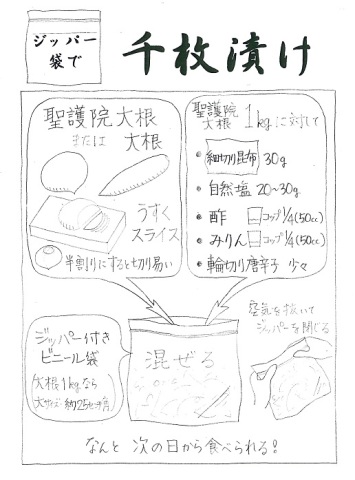 ジッパー
袋で
千枚漬け
聖護院大根
または 大根
うすく
スライス
半割りにすると切り易い
聖護院
大根 1kgに対して
・細切り昆布 30g
・自然塩 20~30g
・酢 コップ1/4(50cc)
・みりん コップ1/4(50cc)
・輪切り唐辛子 少々
ジッパー付き
ビニール袋
大根1kgなら
混ぜる
空気を抜いて
ジッパーを閉じる
なんと 次の日から食べられる!